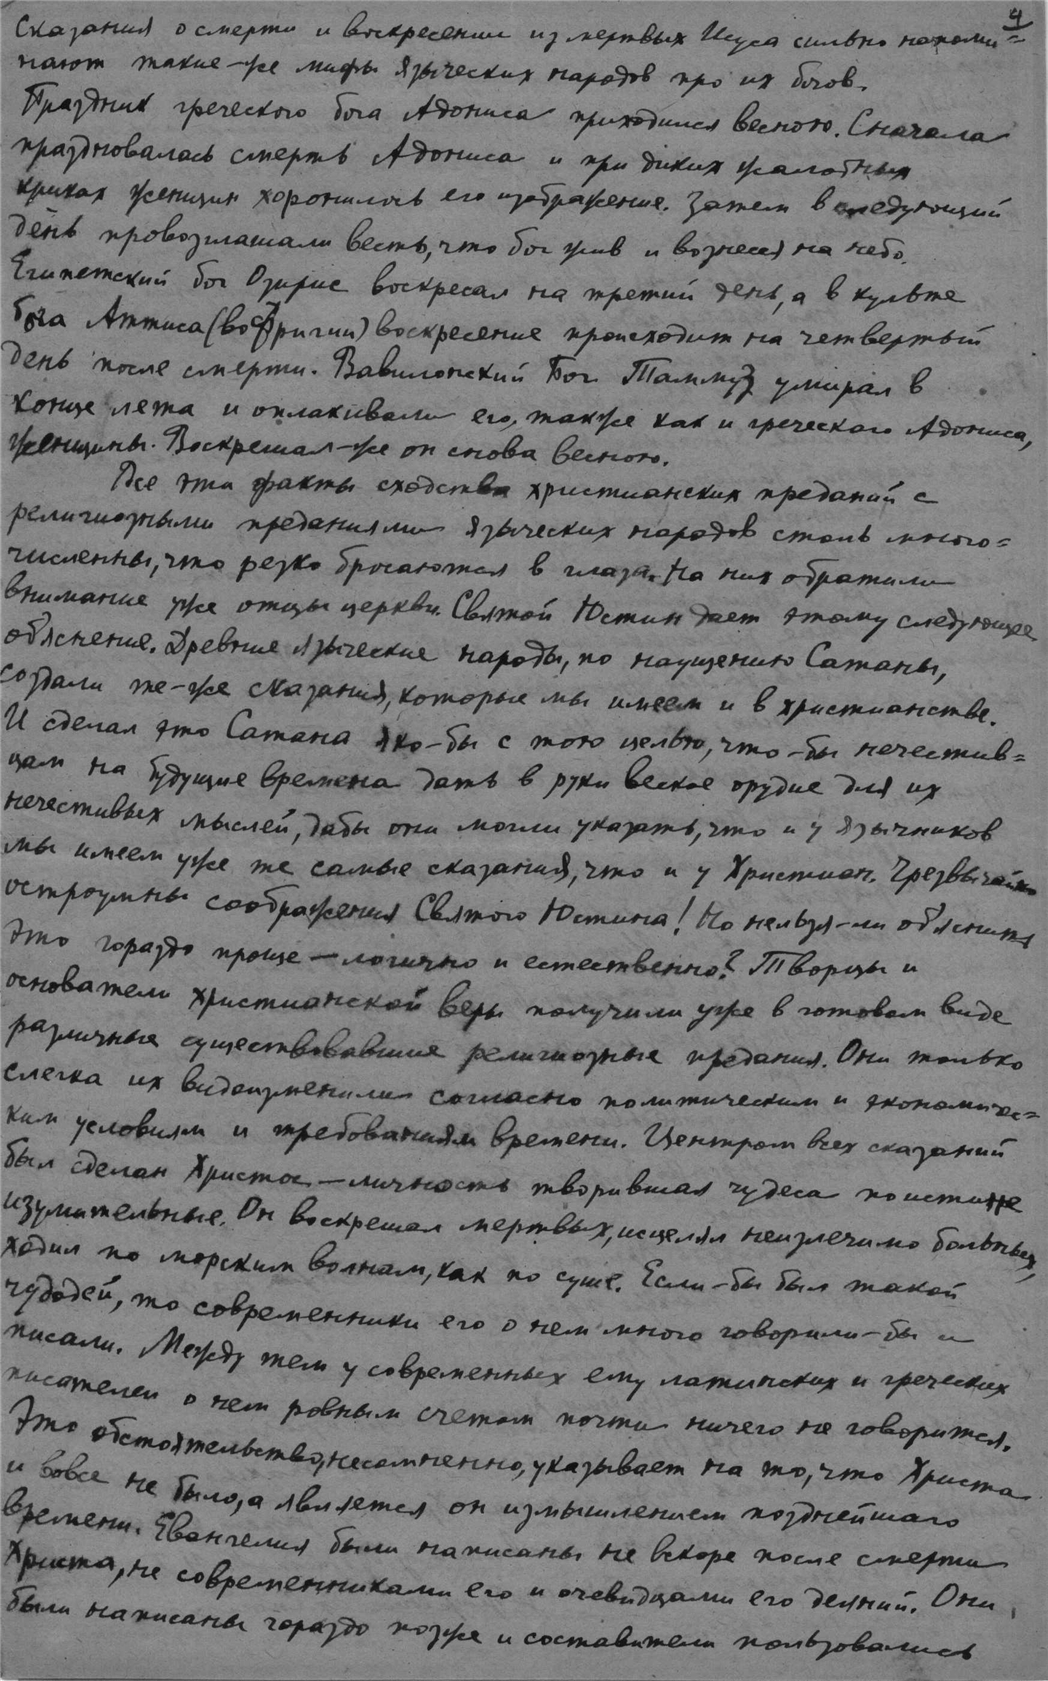 4
Сказания о смерти и воскресении из мертвых Исуса сильно напоми=
нают такие-же мифы языческих народов про их богов.
Праздник греческого бога Адониса приходился весною. Сначала
праздновалась смерть Адониса и при диких жалобных
криках женщин хоронилось его изображение. Затем в следующий
день провозглашали весть, что бог жив и вознесся на небо.
Египетский бог Озирис воскресал на третий день, а в культе
бога Аттиса (во Фригии) воскресение происходит на четвертый
день после смерти. Вавилонский Бог Таммуз умирал в
конце лета и оплакивали его, также как и греческаго Адониса,
женщины. Воскрешал-же он снова весною.
Все эти факты сходства христианских преданий с
религиозными преданиями языческих народов столь много=
численны, что резко бросаются в глаза. На них обратили
внимание уже отцы церкви. Святой Юстин дает этому следующее
объяснение. Древние языческие народы, по наущению Сатаны,
создали те-же сказания, которые мы имеем и в христианстве.
И сделал это Сатана яко-бы с тою целью, что-бы нечестив=
цам на будущие времена дать в руки веское орудие для их
нечестивых мыслей, дабы они могли указать, что и у язычников
мы имеем уже те самые сказания, что и у Христиан. Чрезвычайно
остроумны соображения Святого Юстина! Но нельзя-ли объяснить
это гораздо проще — логично и естественно? Творцы и
основатели христианской веры получили уже в готовом виде
различные существовавшие религиозные предания. Они только
слегка их видоизменили согласно политическим и экономичес=
ким условиям и требованиям времени. Центром всех сказаний
был сделан Христос — личность творившая чудеса поистине
изумительные. Он воскрешал мертвых, исцелял неизлечимо больных,
ходил по морским волнам, как по суше. Если-бы был такой
чудодей, то современники его о нем много говорили-бы и
писали. Между тем у современных ему латинских и греческих
писателей о нем ровным счетом почти ничего не говорится.
Это обстоятельство, несомненно, указывает на то, что Христа
и вовсе не было, а является он измышлением позднейшаго
времени. Евангелия были написаны не вскоре после смерти
Христа, не современниками его и очевидцами его деяний. Они
были написаны гораздо позже и составители пользовались